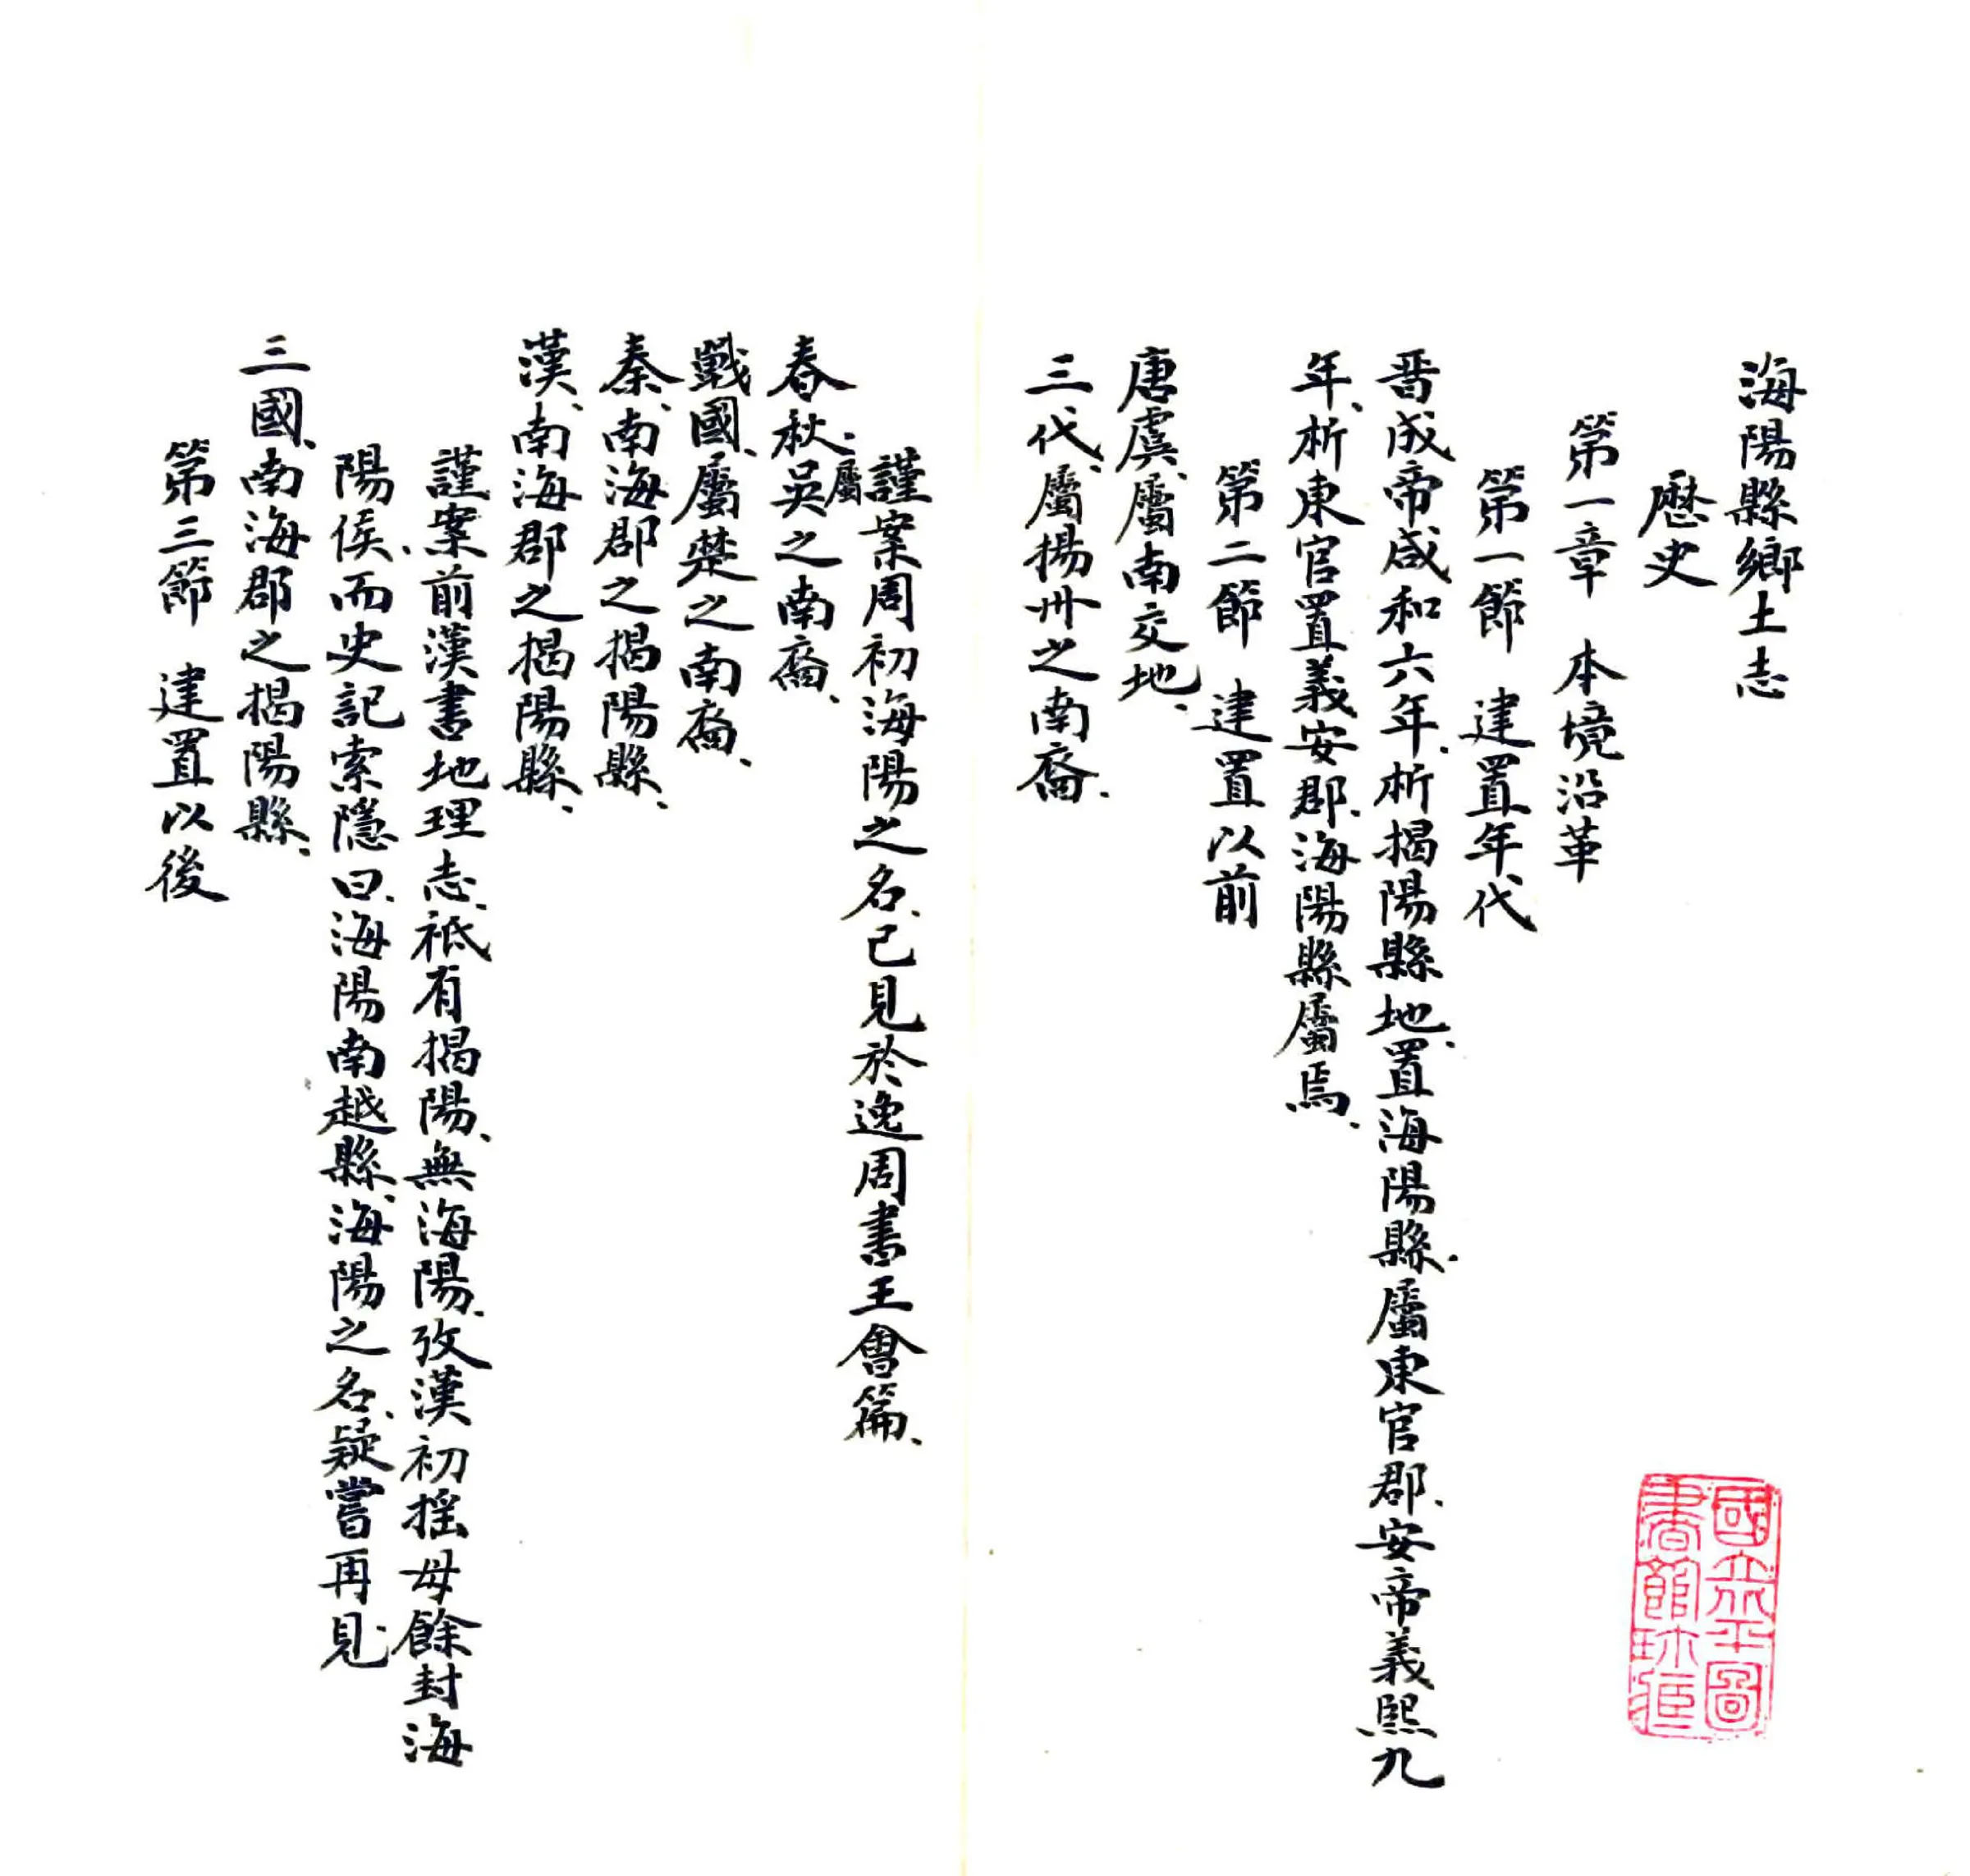 海陽縣鄉土志
歷史
第一章　本境沿革
第一節　建置年代
晉成帝咸和六年、析揭陽縣地、置海陽縣、屬東官郡、安帝義熙九
年、析東官置義安郡、海陽縣屬焉、
第二節　建置以前
唐虞、屬南交地、
三代、屬揚州之南裔、
謹案周初海陽之名、已見於逸周書王會篇、
春秋、屬吳之南裔、
戰國、屬楚之南裔、
秦、南海郡之揭陽縣、
漢、南海郡之揭陽縣、
謹案前漢書地理志、祇有揭陽、無海陽、攷漢初搖母餘封海
陽侯、而史記索隱曰、海陽南越縣、海陽之名、疑嘗再見、
三國、南海郡之揭陽縣、
第三節　建置以後
國立北平圖書館珍藏